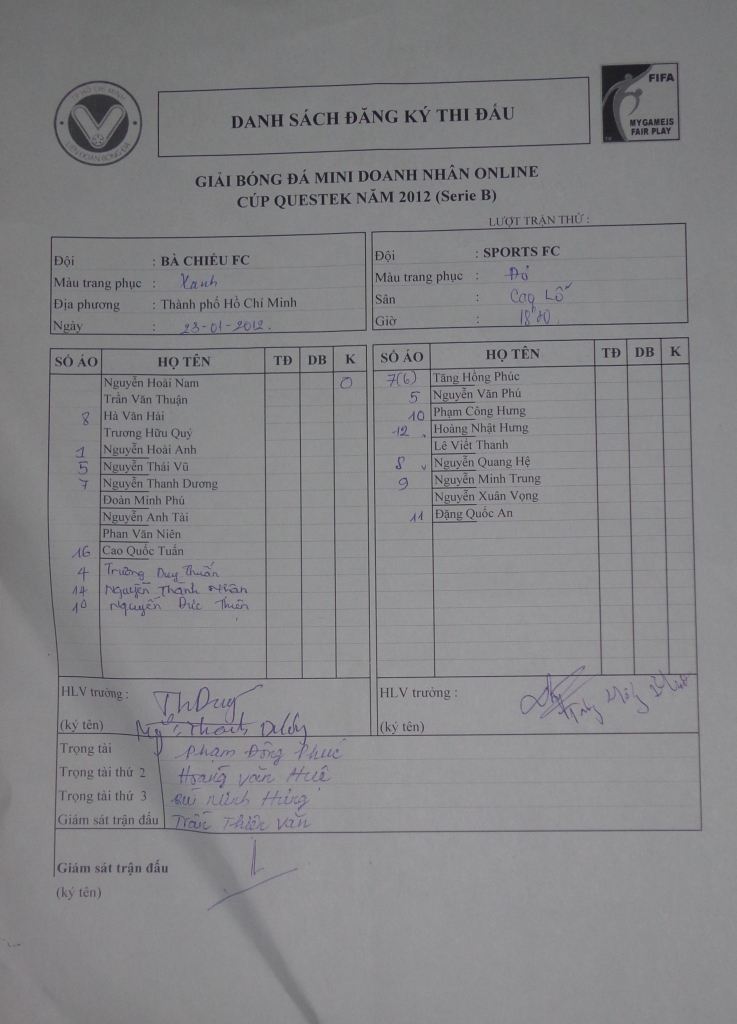 TP HỒ CHÍ MINH
LIÊN HOAN BÓNG ĐÁ
DANH SÁCH ĐĂNG KÝ THI ĐẤU
FIFA
MY GAME IS
FAIR PLAY
GIẢI BÓNG ĐÁ MINI DOANH NHÂN ONLINE
CÚP QUESTEK NĂM 2012 (Serie B)
LƯỢT TRẬN THỨ :
Đội : BÀ CHIỂU FC
Màu trang phục : Xanh
Địa phương : Thành phố Hồ Chí Minh
Ngày : 23-01-2012.
Đội : SPORTS FC
Màu trang phục : Đỏ
Sân : Cao Lỗ
Giờ : 18h
SỐ ÁO HỌ TÊN TĐ DB K
Nguyễn Hoài Nam 0
Trần Văn Thuận
8 Hà Văn Hải
Trương Hữu Quý
1 Nguyễn Hoài Anh
5 Nguyễn Thái Vũ
7 Nguyễn Thanh Dương
Đoàn Minh Phú
Nguyễn Anh Tài
Phan Văn Niên
16 Cao Quốc Tuấn
4 Trương Duy Thuấn
14 Nguyễn Thành Nhân
10 Nguyễn Đức Thiên
SỐ ÁO HỌ TÊN TĐ DB K
7(6) Tăng Hồng Phúc
5 Nguyễn Văn Phú
10 Phạm Công Hưng
12 Hoàng Nhật Hưng
Lê Viết Thanh
8 Nguyễn Quang Hệ
9 Nguyễn Minh Trung
Nguyễn Xuân Vọng
11 Đặng Quốc An
HLV trưởng :
ThDuy
(ký tên)
HLV trưởng :
(ký tên)
Trọng tài Phạm Đông Phúc
Trọng tài thứ 2 Hoàng Văn Huê
Trọng tài thứ 3 Bùi Minh Hùng
Giám sát trận đấu Trần Thiên Văn
Giám sát trận đấu
(ký tên)